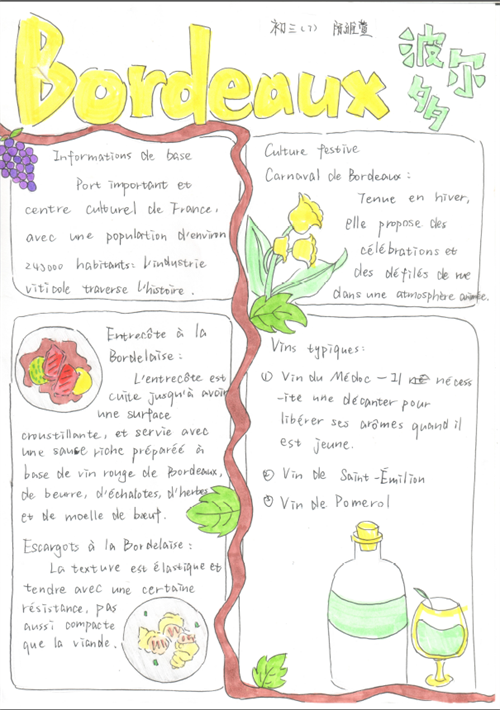 初三(7)
Bordeaux
波尔多
Informations de base
Port important et
centre culturel de France,
avec une population d'environ
243000 habitants: L'industrie
viticole traverse l'histoire.
Culture festive
Carnaval de Bordeaux:
Tenue en hiver,
elle propose des
célébrations et
des défilés de rue
dans une atmosphère animée.
Entrecôte à la
Bordelaise:
L'entrecôte est
cuite jusqu'à avoir
une surface
croustillante, et servie avec
une sauce riche préparée à
base de vin rouge de Bordeaux,
de beurre, d'échalotes, d'herbes
et de moelle de bœuf.
Escargots à la Bordelaise:
La texture est élastique et
tendre avec une certaine
résistance, pas
aussi compacte
que la viande.
Vins typiques:
① Vin du Médoc - Il nécess
-ite une décanter pour
libérer ses arômes quand il
est jeune.
② Vin de Saint-Émilion
③ Vin de Pomerol